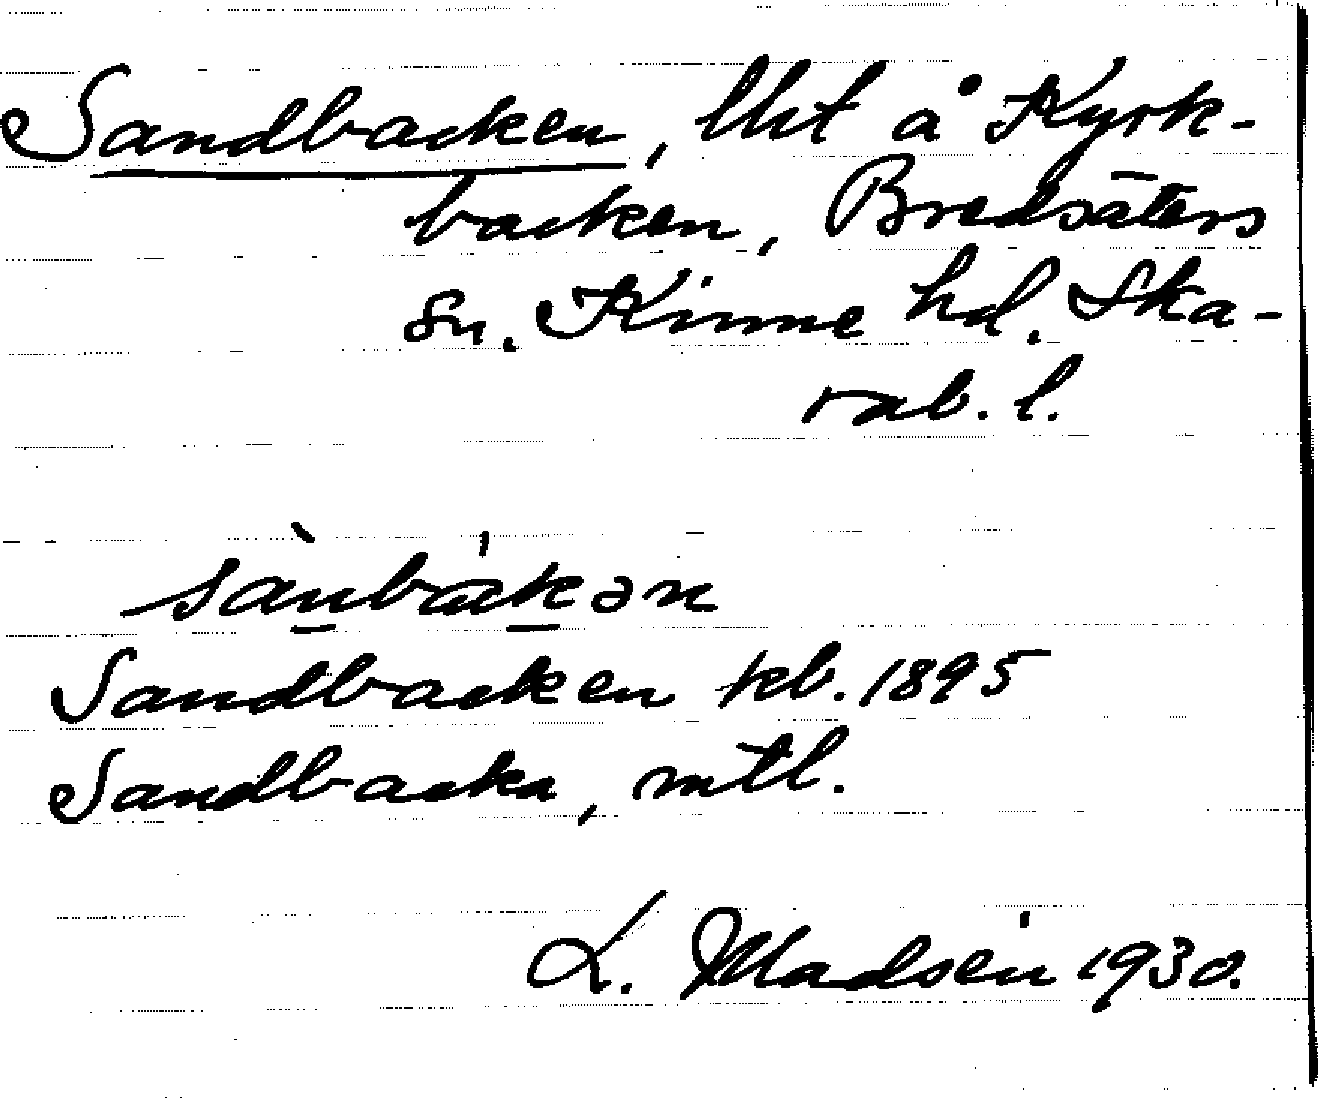 Sandbacken, lht å Kyrk-
backen, Bredsäters
sn. Kinne hd. Ska-
rab. l.
sànba̍kən
Sandbacken kb. 1895
Sandbacka, mtl.
L. Madsén 1930.